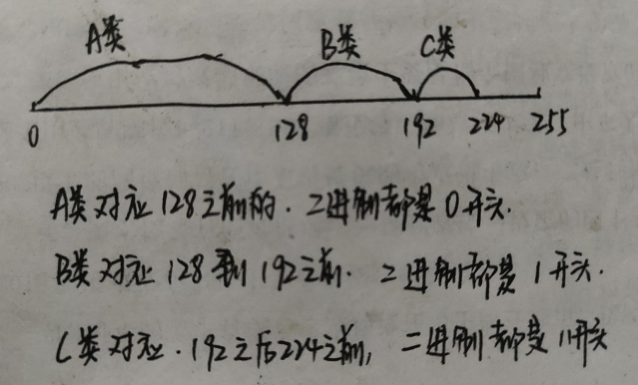 A类 B类 C类
0 128 192 224 255
A类对应128之前的. 二进制都是0开头.
B类对应128到192之前. 二进制都是1开头.
C类对应.192之后224之前, 二进制都是11开头